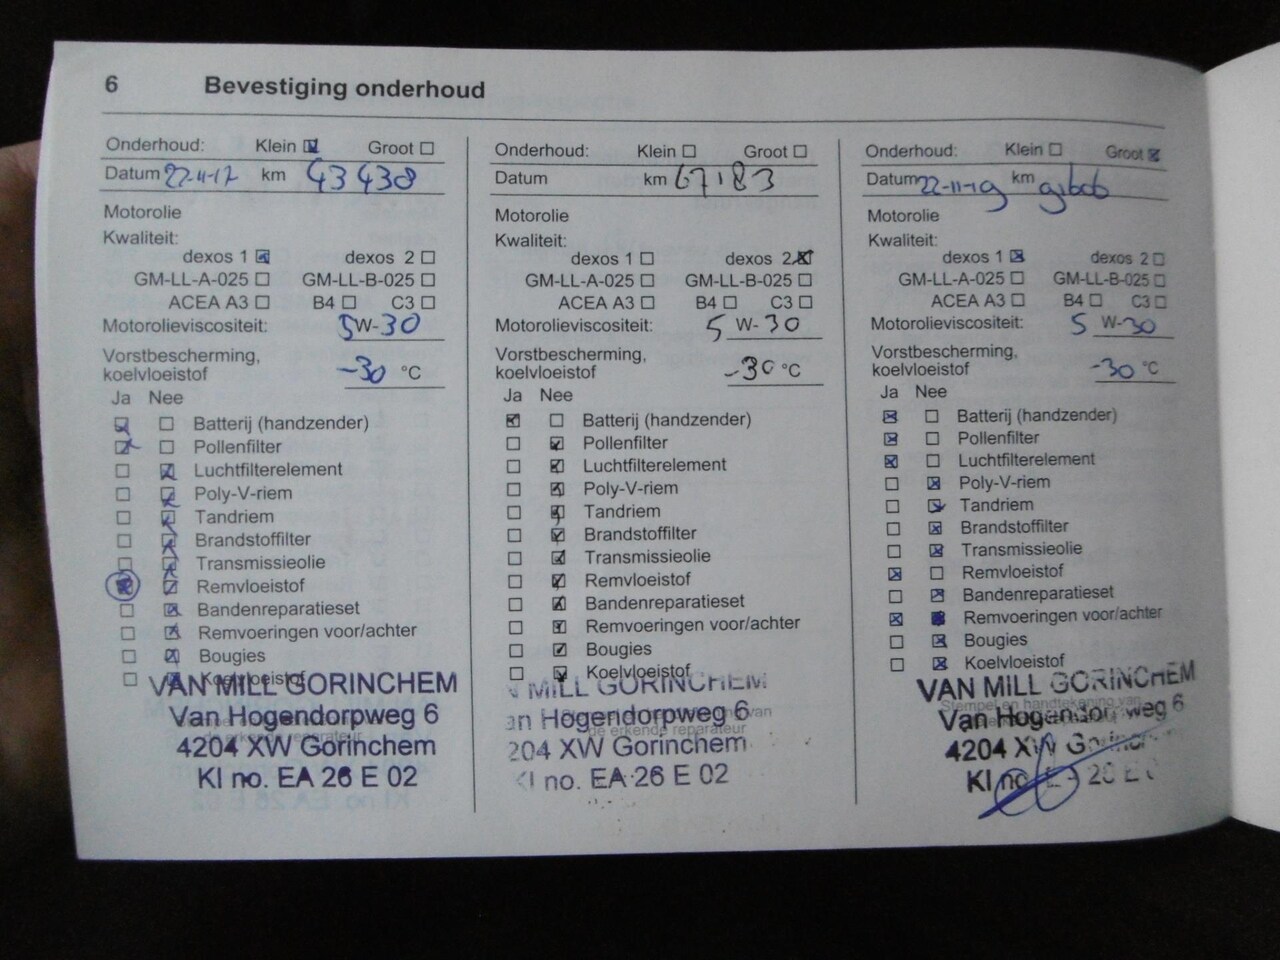 6 Bevestiging onderhoud
Onderhoud: Klein Groot
Datum 22-11-17 km 43 438
Motorolie
Kwaliteit:
dexos 1 dexos 2
GM-LL-A-025 GM-LL-B-025
ACEA A3 B4 C3
Motorolieviscositeit: 5 W-30
Vorstbescherming,
koelvloeistof -30 °C
Ja Nee
Batterij (handzender)
Pollenfilter
Luchtfilterelement
Poly-V-riem
Tandriem
Brandstoffilter
Transmissieolie
Remvloeistof
Bandenreparatieset
Remvoeringen voor/achter
Bougies
Koelvloeistof
VAN MILL GORINCHEM
Van Hogendorpweg 6
de erkende reparateur
4204 XW Gorinchem
KI no. EA 26 E 02
Onderhoud: Klein Groot
Datum km 67183
Motorolie
Kwaliteit:
dexos 1 dexos 2
GM-LL-A-025 GM-LL-B-025
ACEA A3 B4 C3
Motorolieviscositeit: 5 W-30
Vorstbescherming,
koelvloeistof -30 °C
Ja Nee
Batterij (handzender)
Pollenfilter
Luchtfilterelement
Poly-V-riem
Tandriem
Brandstoffilter
Transmissieolie
Remvloeistof
Bandenreparatieset
Remvoeringen voor/achter
Bougies
Koelvloeistof
MILL GORINCHEM
an Hogendorpweg 6
de erkende reparateur
204 XW Gorinchem
KI no. EA 26 E 02
Onderhoud: Klein Groot
Datum 22-11-19 km
Motorolie
Kwaliteit:
dexos 1 dexos 2
GM-LL-A-025 GM-LL-B-025
ACEA A3 B4 C3
Motorolieviscositeit: 5 W-30
Vorstbescherming,
koelvloeistof -30 °C
Ja Nee
Batterij (handzender)
Pollenfilter
Luchtfilterelement
Poly-V-riem
Tandriem
Brandstoffilter
Transmissieolie
Remvloeistof
Bandenreparatieset
Remvoeringen voor/achter
Bougies
Koelvloeistof
VAN MILL GORINCHEM
Stempel en handtekening van
Van Hogendorpweg 6
4204 XW Gorinchem
KI no. EA 26 E